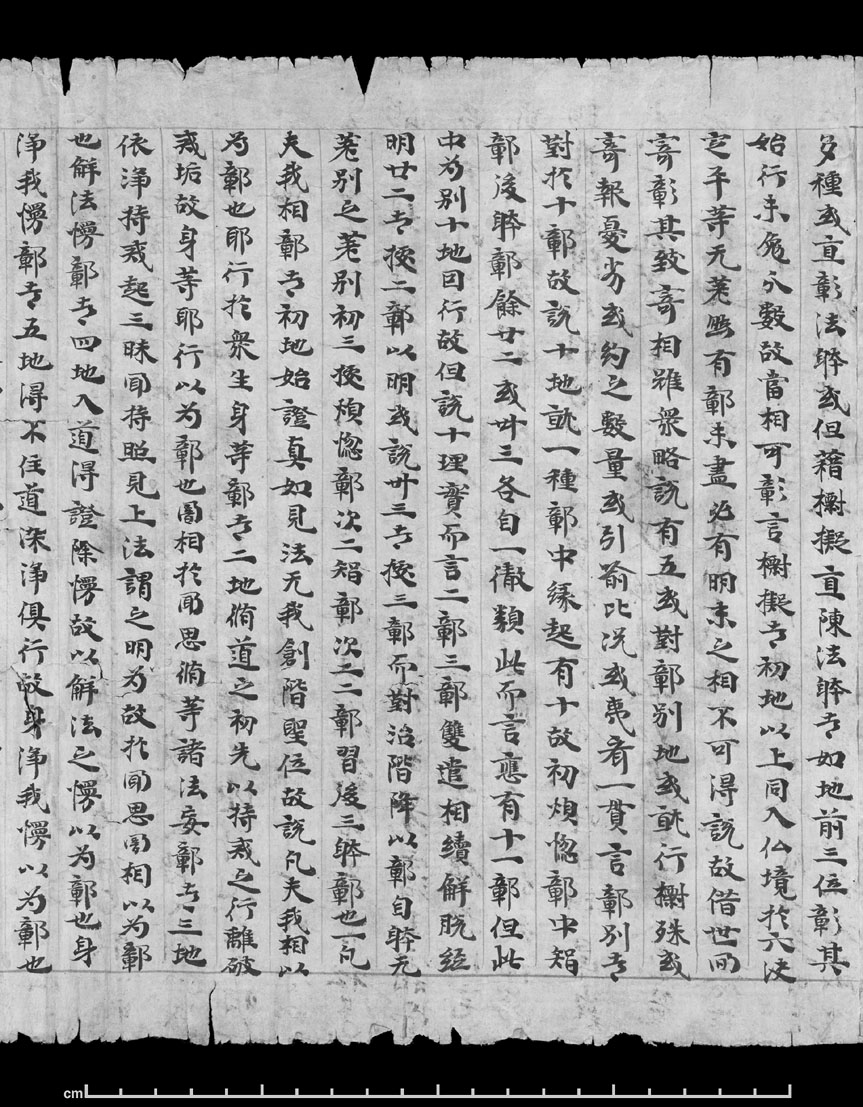 多種或直彰法躰或但藉㯽擬直陳法躰者如地前三位彰其
始行未免分數故當相可彰言㯽擬者初地以上同入仏境於六決
定平等无差照有鄣未盡必有明未之相不可得說故借世間
寄彰其致寄相雖衆略說有五或對鄣別地或就行㯽殊或
寄報憂劣或約之數量或引喻比況或夷齊一貫言鄣別者
對於十鄣故說十地就一種鄣中緣起有十故初煩惚鄣中智
鄣後躰鄣餘廿二或卅三各自一徹類此而言應有十一鄣但此
中為別十地因行故但說十理實而言二鄣三鄣雙遣相續解脫經
明廿二者據二鄣以明或說卅三者據三鄣而對治階降以鄣自躰无
差別之差別初三據煩惚鄣次二智鄣次二二鄣習後三躰鄣也一凡
夫我相鄣者初地始證真如見法无我創階聖位故說凡夫我相以
為鄣也耶行於衆生身等鄣者二地脩道之初先以持戒之行離破
戒垢故身等耶行以為鄣也闇相於聞思脩等諸法妄鄣者三地
依淨持戒起三昧聞持照見上法謂之明為故於聞思闇相以為鄣
也解法慢鄣者四地入道得證除慢故以解法之慢以為鄣也身
淨我慢鄣者五地得不住道染淨俱行故身淨我慢以為鄣也